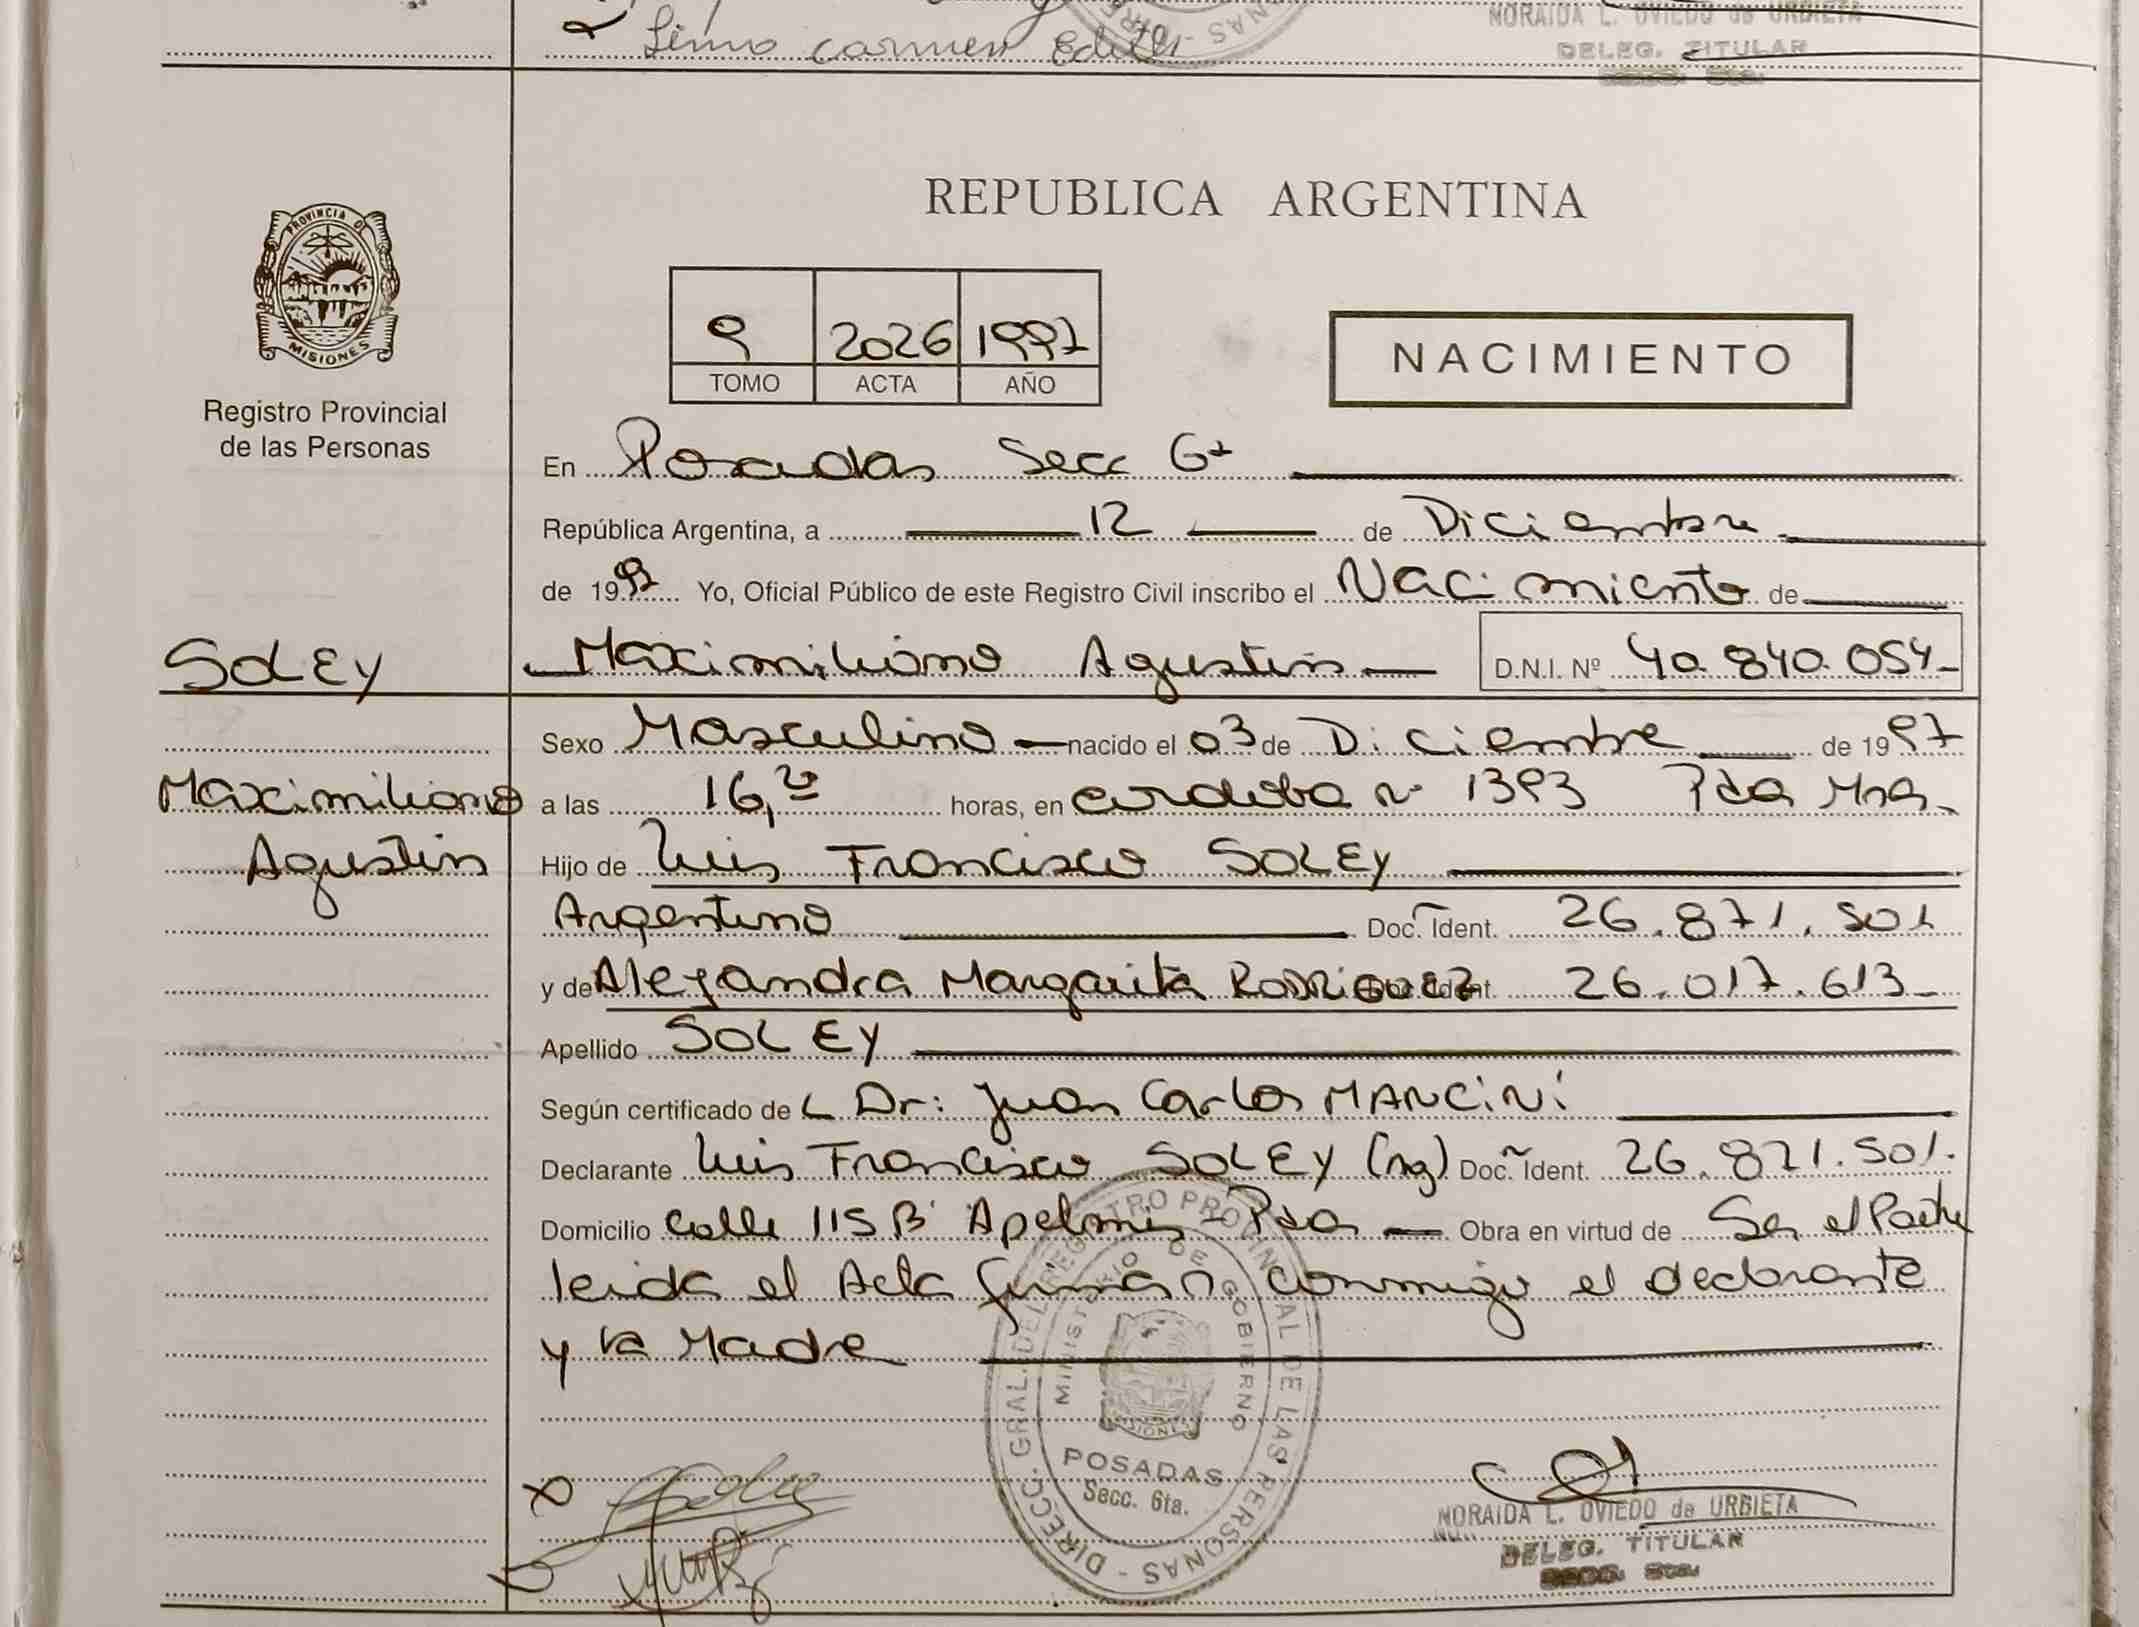 Limo Carmen Edith
NORAIDA L. OVIEDO de URBIETA
DELEG. TITULAR
REPUBLICA ARGENTINA
PROVINCIA DE
MISIONES
Registro Provincial
de las Personas
9 2026 1997
TOMO ACTA AÑO
NACIMIENTO
En Posadas Secc 6ª
República Argentina, a 12 de Diciembre
de 1997 Yo, Oficial Público de este Registro Civil inscribo el Nacimiento de
SOLEY Maximiliano Agustin D.N.I. Nº 40.840.054
Sexo Masculino nacido el 03 de Diciembre de 1997
Maximiliano a las 16, horas, en cordoba nº 1393 Pdas Mnes.
Agustin Hijo de Luis Francisco SOLEY
Argentino Doc. Ident. 26.871.501
y de Alejandra Margarita RODRIGUEZ Doc. Ident. 26.017.613
Apellido SOLEY
Según certificado de Dr: Juan Carlos MANCINI
Declarante Luis Francisco SOLEY Doc. Ident. 26.871.501.
Domicilio Calle 115 B Pdas Obra en virtud de Ser el Padre
leida el Acta firman conmigo el declarante
y la Madre
DIRECC. GRAL. DEL REGISTRO PROVINCIAL DE LAS PERSONAS
MINISTERIO DE GOBIERNO
MISIONES
POSADAS
Secc. 6ta.
NORAIDA L. OVIEDO de URBIETA
DELEG. TITULAR
Secc. 6ta.